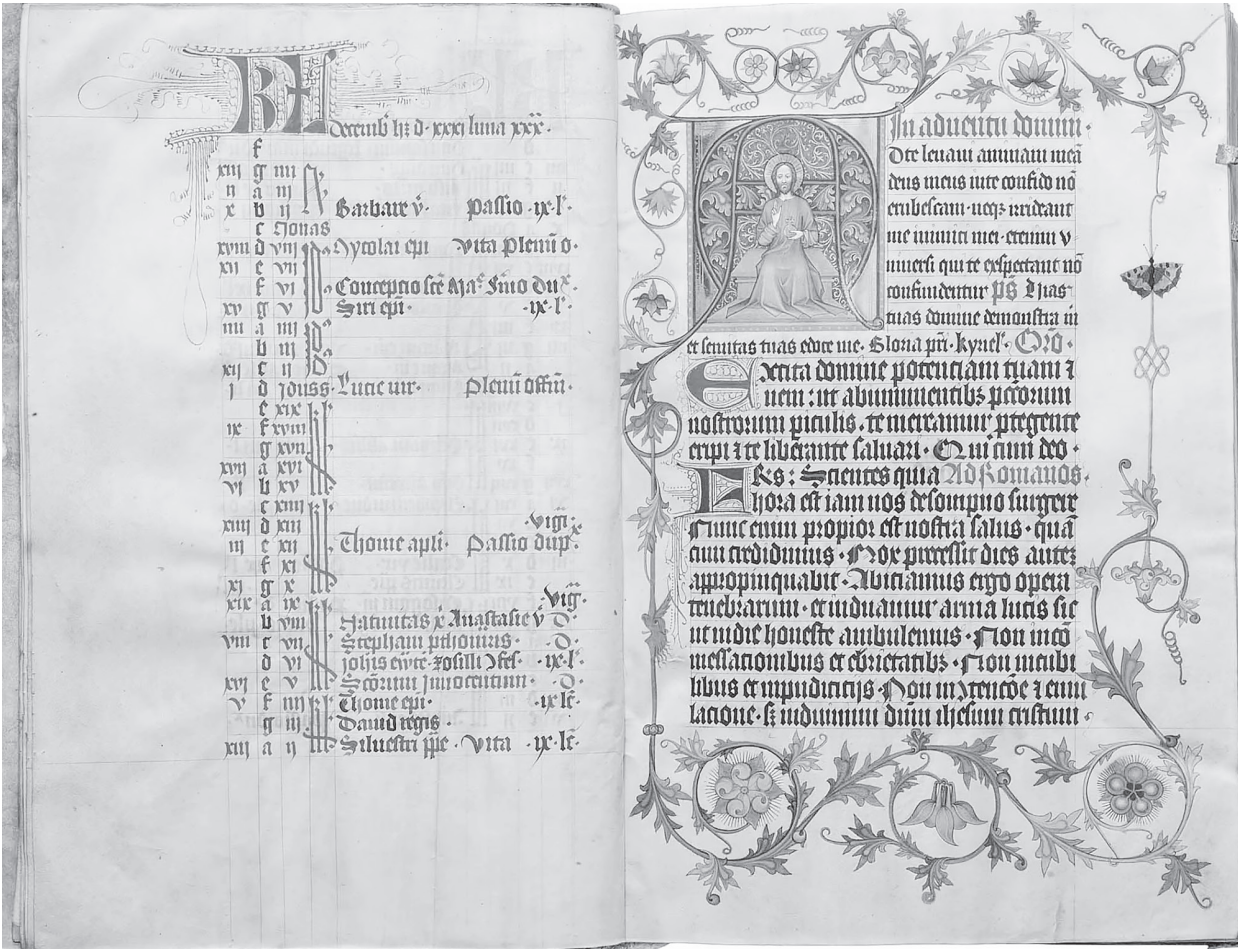 KL
decemb' hz d· xxxi luna xxx·
f
xiii g iiii N
ii a iii
x b ii Barbare v̄· Passio ·ix·l'·
c Nonas
xviii d viii Nycolai epi Vita Plenū o·
xii e vii
f vi Concepcio scē Ma
xv g v Siri epī· ·ix·l'·
iiii a iiii
b iii
xii c ii
i d Lucie vir· Plenū offm̄·
e xix
ix f xviii
g xvii
xvii a xvi
vi b xv
c xiiii
xiiii d xiii ·vigī·
iii e xii Thome apli· Passio dup·
f xi
xi g x
xix a ix Vig̅·
b viii Natiuitas x̄ Anastasie v̄ ·D·
viii c vii Stephani pthomris· ·D·
d vi Johis ·ix·l'·
xvi e v Scōrum Innocentum· ·D·
v f iiii Thome epi· ·ix lē·
g iii Dauid regis·
xiii a ii Siluestri ppe· Vita ·ix·lē·
In aduentu domini·
Dte leuaui animam meā
deus meus in te confido nō
erubescam· neqz irrideant
me inimici mei· etenim v
niuersi qui te exspectant nō
confundentur PS Uias
tuas domine demonstra m
et semitas tuas edoce me· Gloria pri· kyriel'· Oro·
Excita domine potenciam tuam ⁊
ueni: ut ab imminentibz pccorum
nostrorum piculis· te mereamur ptegente
eripi ⁊ te liberante saluari· Qui cum deo·
FRs: Scientes quia Ad Romanos·
hora est iam nos de sompno surgere
Nunc enim propior est nostra salus· quā
cum credidimus· Nox precessit dies autez
appropinquabit· Abiciamus ergo opera
tenebrarum· et induamur arma lucis sic
ut in die honeste ambulemus· Non in cō
messacionibus et ebrietatibz· Non in cubi
libus et inpudicitijs· Non in ɔtencōe ⁊ emu
lacione· sz induimini dūm ihesum cristum·